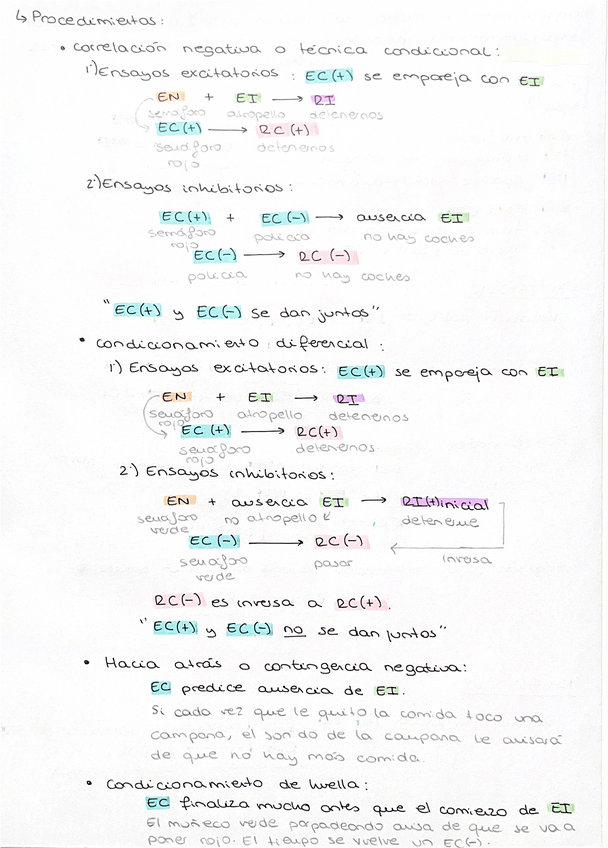 ↳ Procedimientos:
• correlación negativa o técnica condicional:
1') Ensayos excitatorios: EC(+) se empareja con EI
EN + EI → RI
semáforo atropello detenernos
EC(+) → RC(+)
semáforo detenernos
rojo
2') Ensayos inhibitorios:
EC(+) + EC(-) → ausencia EI
semáforo policía no hay coches
rojo
EC(-) → RC(-)
policía no hay coches
"EC(+) y EC(-) se dan juntos"
• condicionamiento diferencial:
1') Ensayos excitatorios: EC(+) se empareja con EI
EN + EI → RI
semáforo atropello detenernos
rojo
EC(+) → RC(+)
semáforo detenernos
rojo
2') Ensayos inhibitorios:
EN + ausencia EI → RI(+) inicial
semáforo no atropello detenerme
verde
EC(-) → RC(-)
semáforo pasar inversa
verde
RC(-) es inversa a RC(+).
"EC(+) y EC(-) no se dan juntos"
• Hacia atrás o contingencia negativa:
EC predice ausencia de EI.
Si cada vez que le quito la comida toco una
campana, el sonido de la campana le avisará
de que no hay más comida.
• Condicionamiento de huella:
EC finaliza mucho antes que el comienzo de EI
El muñeco verde parpadeando avisa de que se va a
poner rojo. El tiempo se vuelve un EC(-).